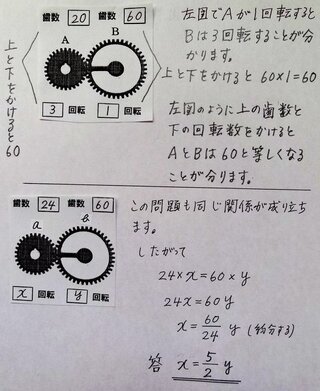 歯数 20 歯数 60
A B
3 回転 1 回転
上と下をかけると60
左図でAが1回転すると
Bは3回転することが分
かります。
上と下をかけると 60×1=60
左図のように上の歯数と
下の回転数をかけると
AとBは60と等しくなる
ことが分ります。
歯数 24 歯数 60
a b
x 回転 y 回転
この問題も同じ関係が成り立ち
ます。
したがって
24×x=60×y
24x=60y
x=60/24 y (約分する)
答 x=5/2 y